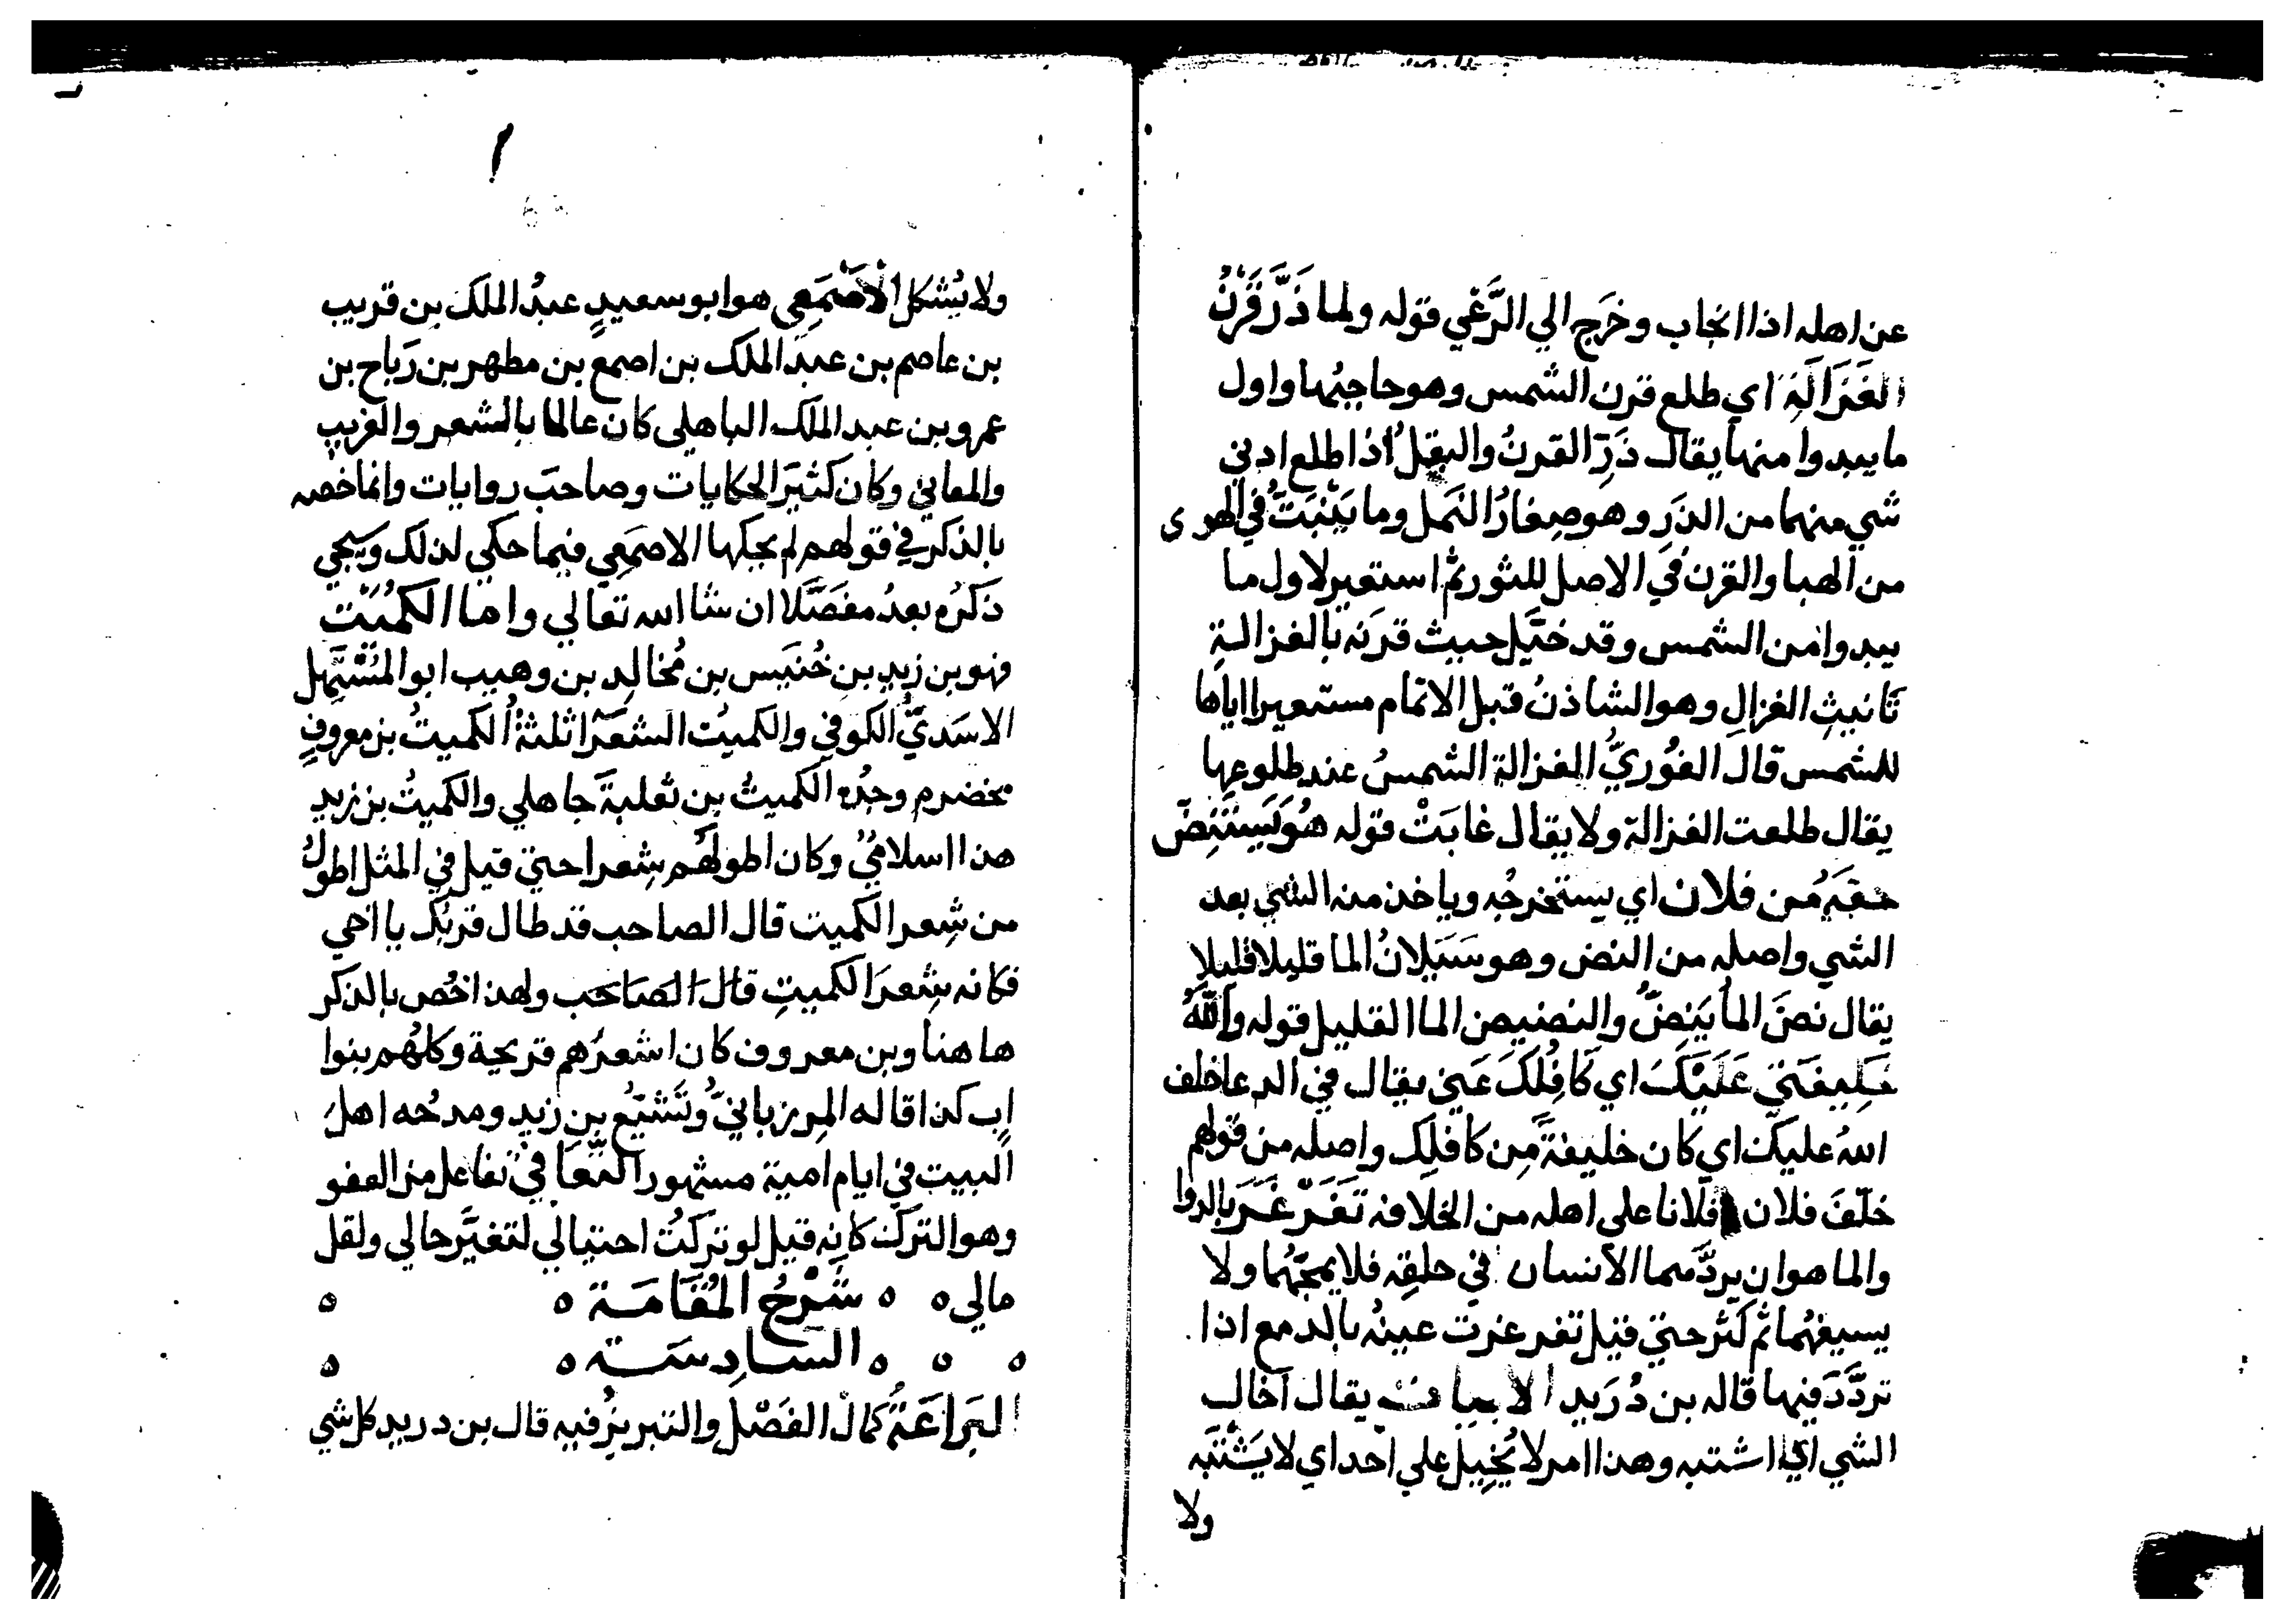 عن اهله اذا انجاب وخَرَج الي الرَّعْي قوله ولما ذَرَّ قَرْنُ
الغَزَالَةِ اي طلع قرن الشمس وهو حاجبُها واول
ما يبدوا منها يقال ذَرّ القرنُ والبقلُ اذا طلع ادني
شي منهما من الذَر وهو صِغارُ النمل وما يَنْبَتُّ في الهوى
من الهبا والقرن في الاصل للثور ثم استعير لاول ما
يبدوا من الشمس وقد خيَّل حيث قرنَه بالغزالةِ
تانيثِ الغزالِ وهو الشاذنُ قبل الاتمام مستعيرا اياها
للشمس قال الغُوريُّ الغزالة الشمسُ عند طلوعِها
يقال طلعت الغزالة ولا يقال غابَتْ قوله هُوَ يَستَنِضّ
حقَهُ من فلان اي يستخرجُه وياخذ منه الشي بعد
الشي واصله من النض وهو سَيَلانُ الما قليلا قليلا
يقال نضَ الما يَنِضُّ والنضيض الما القليل قوله واللهُ
خَلِيفَتي عَلَيْكَ اي كَافِلُكَ عَني يقال في الدعا خلف
اللهُ عليك اي كان خليفةً من كافلِك واصله من قولهم
خلَفَ فلان فلانا على اهله من الخلافه تَغَرْغَرَ بالدوا
والما هو ان يردَّهما الانسان في حلقِه فلا يمجَّهُما ولا
يسيغهُما ثم كَثر حتي قيل تغرغرت عينُه بالدمع اذا
تردَّدَ فيها قاله بن دُرَيد الابيات يقال اَخال
الشي اي اشتبه وهذا امر لا يُخِيل علي احد اي لا يَشْتَبه
ولا
ولا يُشكل الْاصْمَعِي هو ابو سعيدٍ عبدُ الملك بن قريب
بن عاصم بن عبد الملك بن اصمع بن مطهر بن رَباح بن
عمرو بن عبد الملك الباهلي كان عالما بالشعر والغريب
والمعاني وكان كثيرَ الحكايات وصاحبَ روايات وانما خصه
بالذكر في قولهم لم يحكها الاصمَعِي فيما حكي لذلك ويجي
ذكرُه بعدُ مفصَّلا ان شا الله تعالي واما الكُمَيْت
فهو بن زيدِ بن خُنَيس بن مُخالد بن وهيب ابو المُسْتَهِل
الاسَديُّ الكوفي والكميتُ الشعَرَا ثلثةُ الكميتُ بن معروفٍ
مخضرم وجدُه الكميتُ بن ثعلبةَ جاهلي والكميتُ بن زيد
هذا اسلاميٌّ وكان اطولَهُم شِعرا حتي قيل في المثل اطولُ
من شِعر الكميت قال الصاحب قد طال قرنُك يا اخي
فكانه شِعرُ الكميتِ قالَ الصَاحَب ولهذا خُص بالذكر
ها هنا وبن معروف كان اشعرَهم قريحة وكلهُم بنوا
اب كذا قاله المرزبانيّ وتَشَيّع بن زيد ومدحُه اهلَ
البيت في ايام امية مشهور التّعَافي تفاعل من العفو
وهو الترك كانه قيل لو تركتُ احتيالي لتغيَّر حالي ولقل
مالي ه ه شَرْحُ المُقَامَة ه ه
ه ه ه السادِسَة ه ه
البَرَاعَةُ كمالُ الفَضْلِ والتبريزُ فيه قال بن دريد كل شي